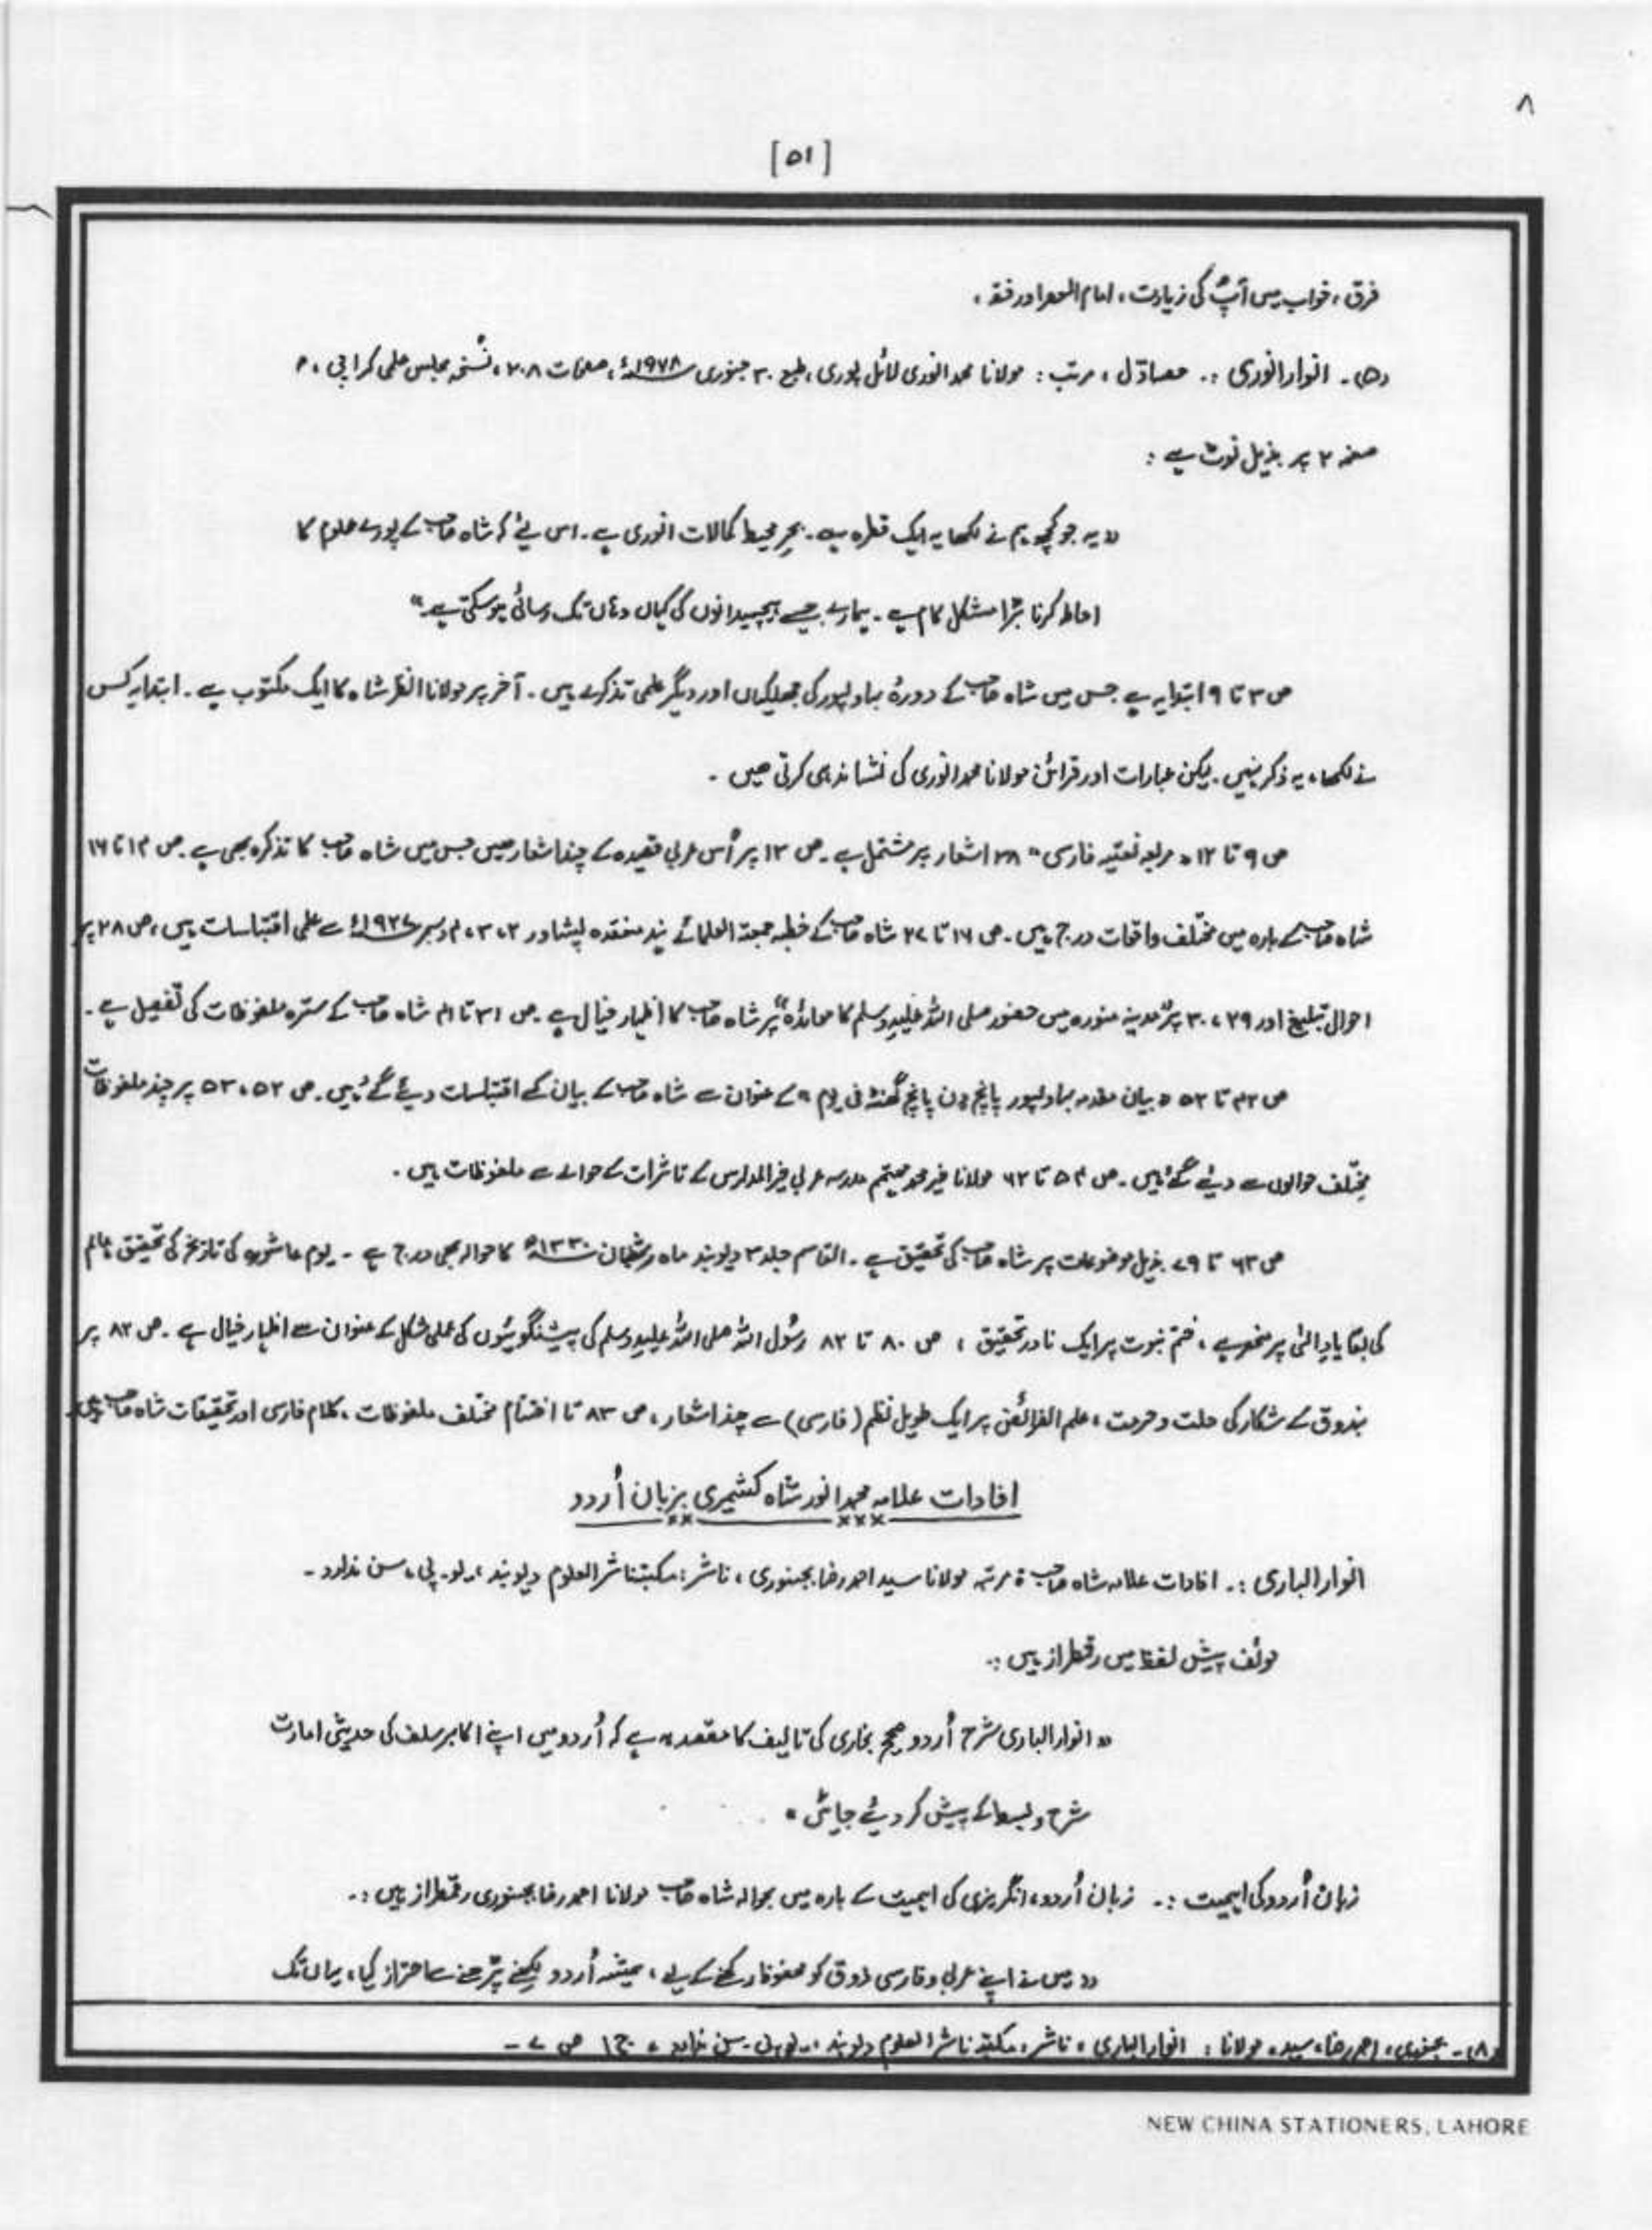 ۸
[۵۱]
فرق ، خواب میں آپؐ کی زیارت ، امام العصر اور فقہ ،
(۵)۔ انوار انوری :۔ حصہ اوّل ، مرتب : مولانا محمد انوری لائل پوری ، طبع ۳۰ جنوری ۱۹۷۸ء ، صفحات ۲۰۸ ، نسخہ مجلس علمی کراچی ،
صفحہ ۲ پر بذیل نوٹ ہے :
"یہ جو کچھ ہم نے لکھا یہ ایک قطرہ ہے ۔ بحرِ محیط کمالات انوری ہے ۔ اس لیٔے کہ شاہ صاحب کے پورے علوم کا
احاطہ کرنا بڑا مشکل کام ہے ۔ ہمارے جیسے ہیچمدانوں کی کہاں وہاں تک رسائی ہو سکتی ہے"
ص ۳ تا ۹ ابتدایہ ہے جس میں شاہ صاحب کے دورۂ بہاولپور کی جھلکیاں اور دیگر علمی تذکرے ہیں ۔ آخر پر مولانا انظر شاہ کا ایک مکتوب ہے ۔ ابتدایہ کس
نے لکھا ، یہ ذکر نہیں ۔ لیکن عبارات اور قرائن مولانا محمد انوری کی نشاندہی کرتی ھیں ۔
ص ۹ تا ۱۲ "مربعہ نعتیہ فارسی" ۳۸ اشعار پر مشتمل ہے ۔ ص ۱۳ پر اُس عربی قصیدہ کے چند اشعار ھیں جس میں شاہ صاحب کا تذکرہ بھی ہے ۔ ص ۱۴ تا ۱۶
شاہ صاحب کے بارہ میں مختلف واقعات درج ہیں ۔ ص ۱۶ تا ۲۷ شاہ صاحب کے خطبہ جمعیۃ العلمائے ہند منعقدہ پشاور ۲ ، ۳ ، ۴ دسمبر ۱۹۲۷ء سے علمی اقتباسات ہیں ، ص ۲۸ پر
احوال تبلیغ اور ۲۹ ، ۳۰ پر "مدینہ منورہ میں حضور صلی اللہ علیہ وسلم کا معاہدہ" پر شاہ صاحب کا اظہارِ خیال ہے ۔ ص ۳۱ تا ۴۱ شاہ صاحب کے سترہ ملفوظات کی تفصیل ہے ۔
ص ۴۲ تا ۵۲ "بیان مقدمہ بہاولپور پانچ دن پانچ گھنٹہ فی یوم" کے عنوان سے شاہ صاحب کے بیان کے اقتباسات دیئے گئے ہیں ۔ ص ۵۲ ، ۵۳ پر چند ملفوظات
مختلف حوالوں سے دیئے گئے ہیں ۔ ص ۵۴ تا ۶۲ مولانا خیر محمد مہتمم مدرسہ عربی خیر المدارس کے تاثرات کے حوالے سے ملفوظات ہیں ۔
ص ۶۳ تا ۷۹ بذیل موضوعات پر شاہ صاحب کی تحقیق ہے ۔ القاسم جلد ۳ دیوبند ماہ شعبان ۱۳۳۰ھ کا حوالہ بھی درج ہے ۔ یوم عاشورہ کی تاریخ کی تحقیق ، عالم
کی بقا یادِ الٰہی پر منحصر ہے ، ختم نبوت پر ایک نادر تحقیق ، ص ۸۰ تا ۸۲ رسُول اللہ صلی اللہ علیہ وسلم کی پیشنگوئیوں کی عملی شکل کے عنوان سے اظہارِ خیال ہے ۔ ص ۸۲ پر
بندوق کے شکار کی حلت و حرمت ، علم الفرائض پر ایک طویل نظم (فارسی) سے چند اشعار ، ص ۸۳ تا اختتام مختلف ملفوظات ، کلام فارسی اور تحقیقات شاہ صاحب ہیں
افادات علامہ محمد انور شاہ کشمیری بزبان اُردو
انوار الباری :۔ افادات علامہ شاہ صاحب مرتبہ مولانا سید احمد رضا بجنوری ، ناشر : مکتبہ ناشر العلوم دیوبند ، یو ۔ پی ، سن ندارد ۔
مولٔف پیش لفظ میں رقمطراز ہیں :۔
"انوار الباری شرح اُردو صحیح بخاری کی تالیف کا مقصد یہ ہے کہ اُردو میں اپنے اکابر سلف کی حدیثی امارت
شرح و بسط کے پیش کر دیئے جائیں"
زبان اُردو کی اہمیت :۔ زبان اُردو ، انگریزی کی اہمیت کے بارہ میں بحوالہ شاہ صاحب مولانا احمد رضا بجنوری رقمطراز ہیں :۔
"میں نے اپنے عربی و فارسی ذوق کو محفوظ رکھنے کے لیے ، ہمیشہ اُردو لکھنے پڑھنے سے احتراز کیا ، یہاں تک
(۸)۔ بجنوری ، احمد رضا ، سید ، مولانا : انوار الباری ، ناشر : مکتبہ ناشر العلوم دیوبند ، یو پی ۔ سن ندارد ، ج ۱ ص ۷ ۔
NEW CHINA STATIONERS, LAHORE